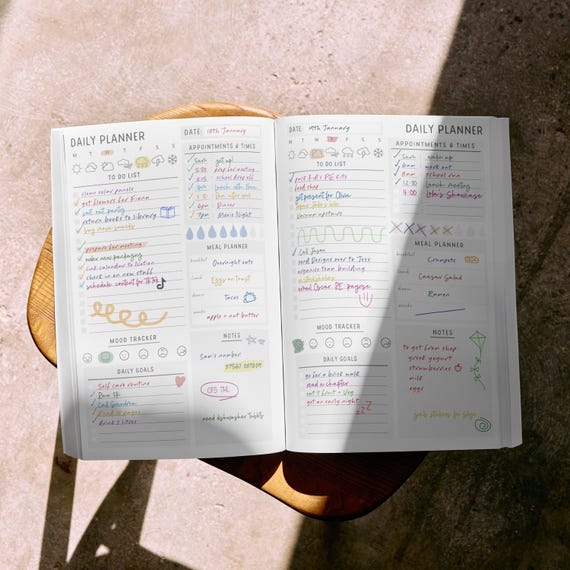 DAILY PLANNER
M T W T F S S
TO DO LIST
clean solar panels
get flowers for Fiona
sort out party
return books to library
buy more snacks
prepare for meeting
order new packaging
link calendar to Notion
check in on new staff
schedule content for
MOOD TRACKER
DAILY GOALS
Self care routine
Run 5K
Call Grandma
Read 10 pages
drink 2 litres
DATE: 18th January
APPOINTMENTS & TIMES
5am get up!
prep for meeting
school drop off
lunch with
6pm Dinner
7pm Movie Night
MEAL PLANNER
breakfast Overnight oats
lunch Eggs on Toast
dinner Tacos
snacks apple + nut butter
NOTES
Sam's number
OFS TML
need dishwasher tablets
DATE: 19th January
M T W T F S S
TO DO LIST
pack Kid's PE kits
food shop
get present for Olivia
Call Jason
send designs over to Jess
organise team building
email Oscar RE payrise
MOOD TRACKER
DAILY GOALS
go for a brisk walk
read a chapter
eat 1 fruit + veg
get an early night
DAILY PLANNER
APPOINTMENTS & TIMES
5am wake up
8am school run
12:30 lunch meeting
4:00 Lola's Showcase
MEAL PLANNER
breakfast Crumpets
lunch Caesar Salad
dinner Ramen
snacks
NOTES
to get from shop
greek yogurt
strawberries
milk
eggs